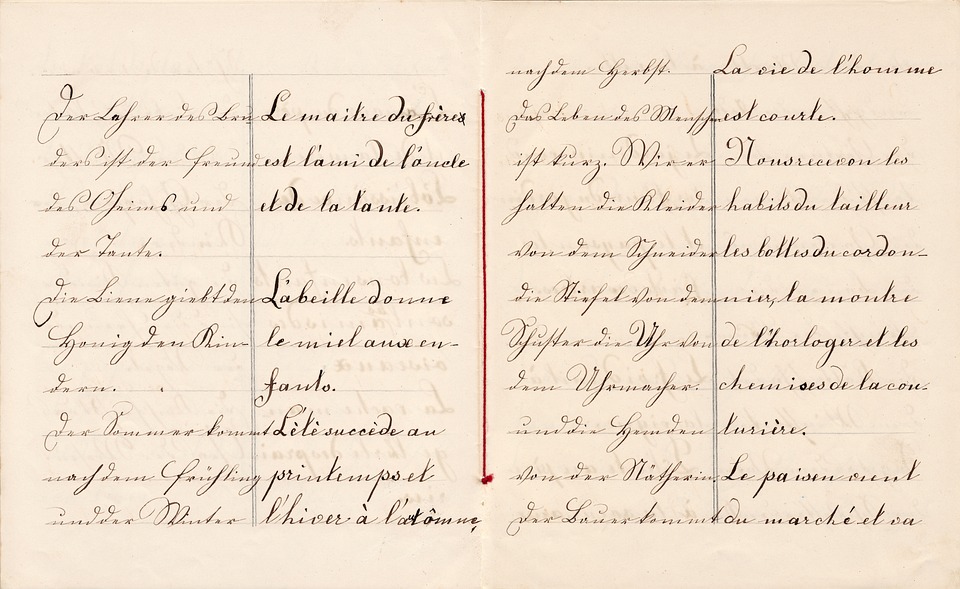 Der Lehrer des Bru
ders ist der Freund
des Oheims und
der Tante.
Die Biene giebt den
Honig den Kin-
dern.
Der Sommer kommt
nach dem Frühling
und der Winter
Le maitre du frère
est l'ami de l'oncle
et de la tante.
L'abeille donne
le miel aux en-
fants.
L'étè succède au
printemps et
l'hiver à l'autômne
nach dem Herbst.
Das Leben des Menschen
ist kurz. Wir er
halten die Kleider
von dem Schneider
die Stiefel von dem
Schuster die Uhr von
dem Uhrmacher.
und die Hemden
von der Nätherin.
Der Bauer kommt
La vie de l'homme
est courte.
Nous recevon les
habits du tailleur
les bottes du cordon-
nier, la montre
de l'horloger et les
chemises de la cou-
turière.
Le paisen vient
du marché et va